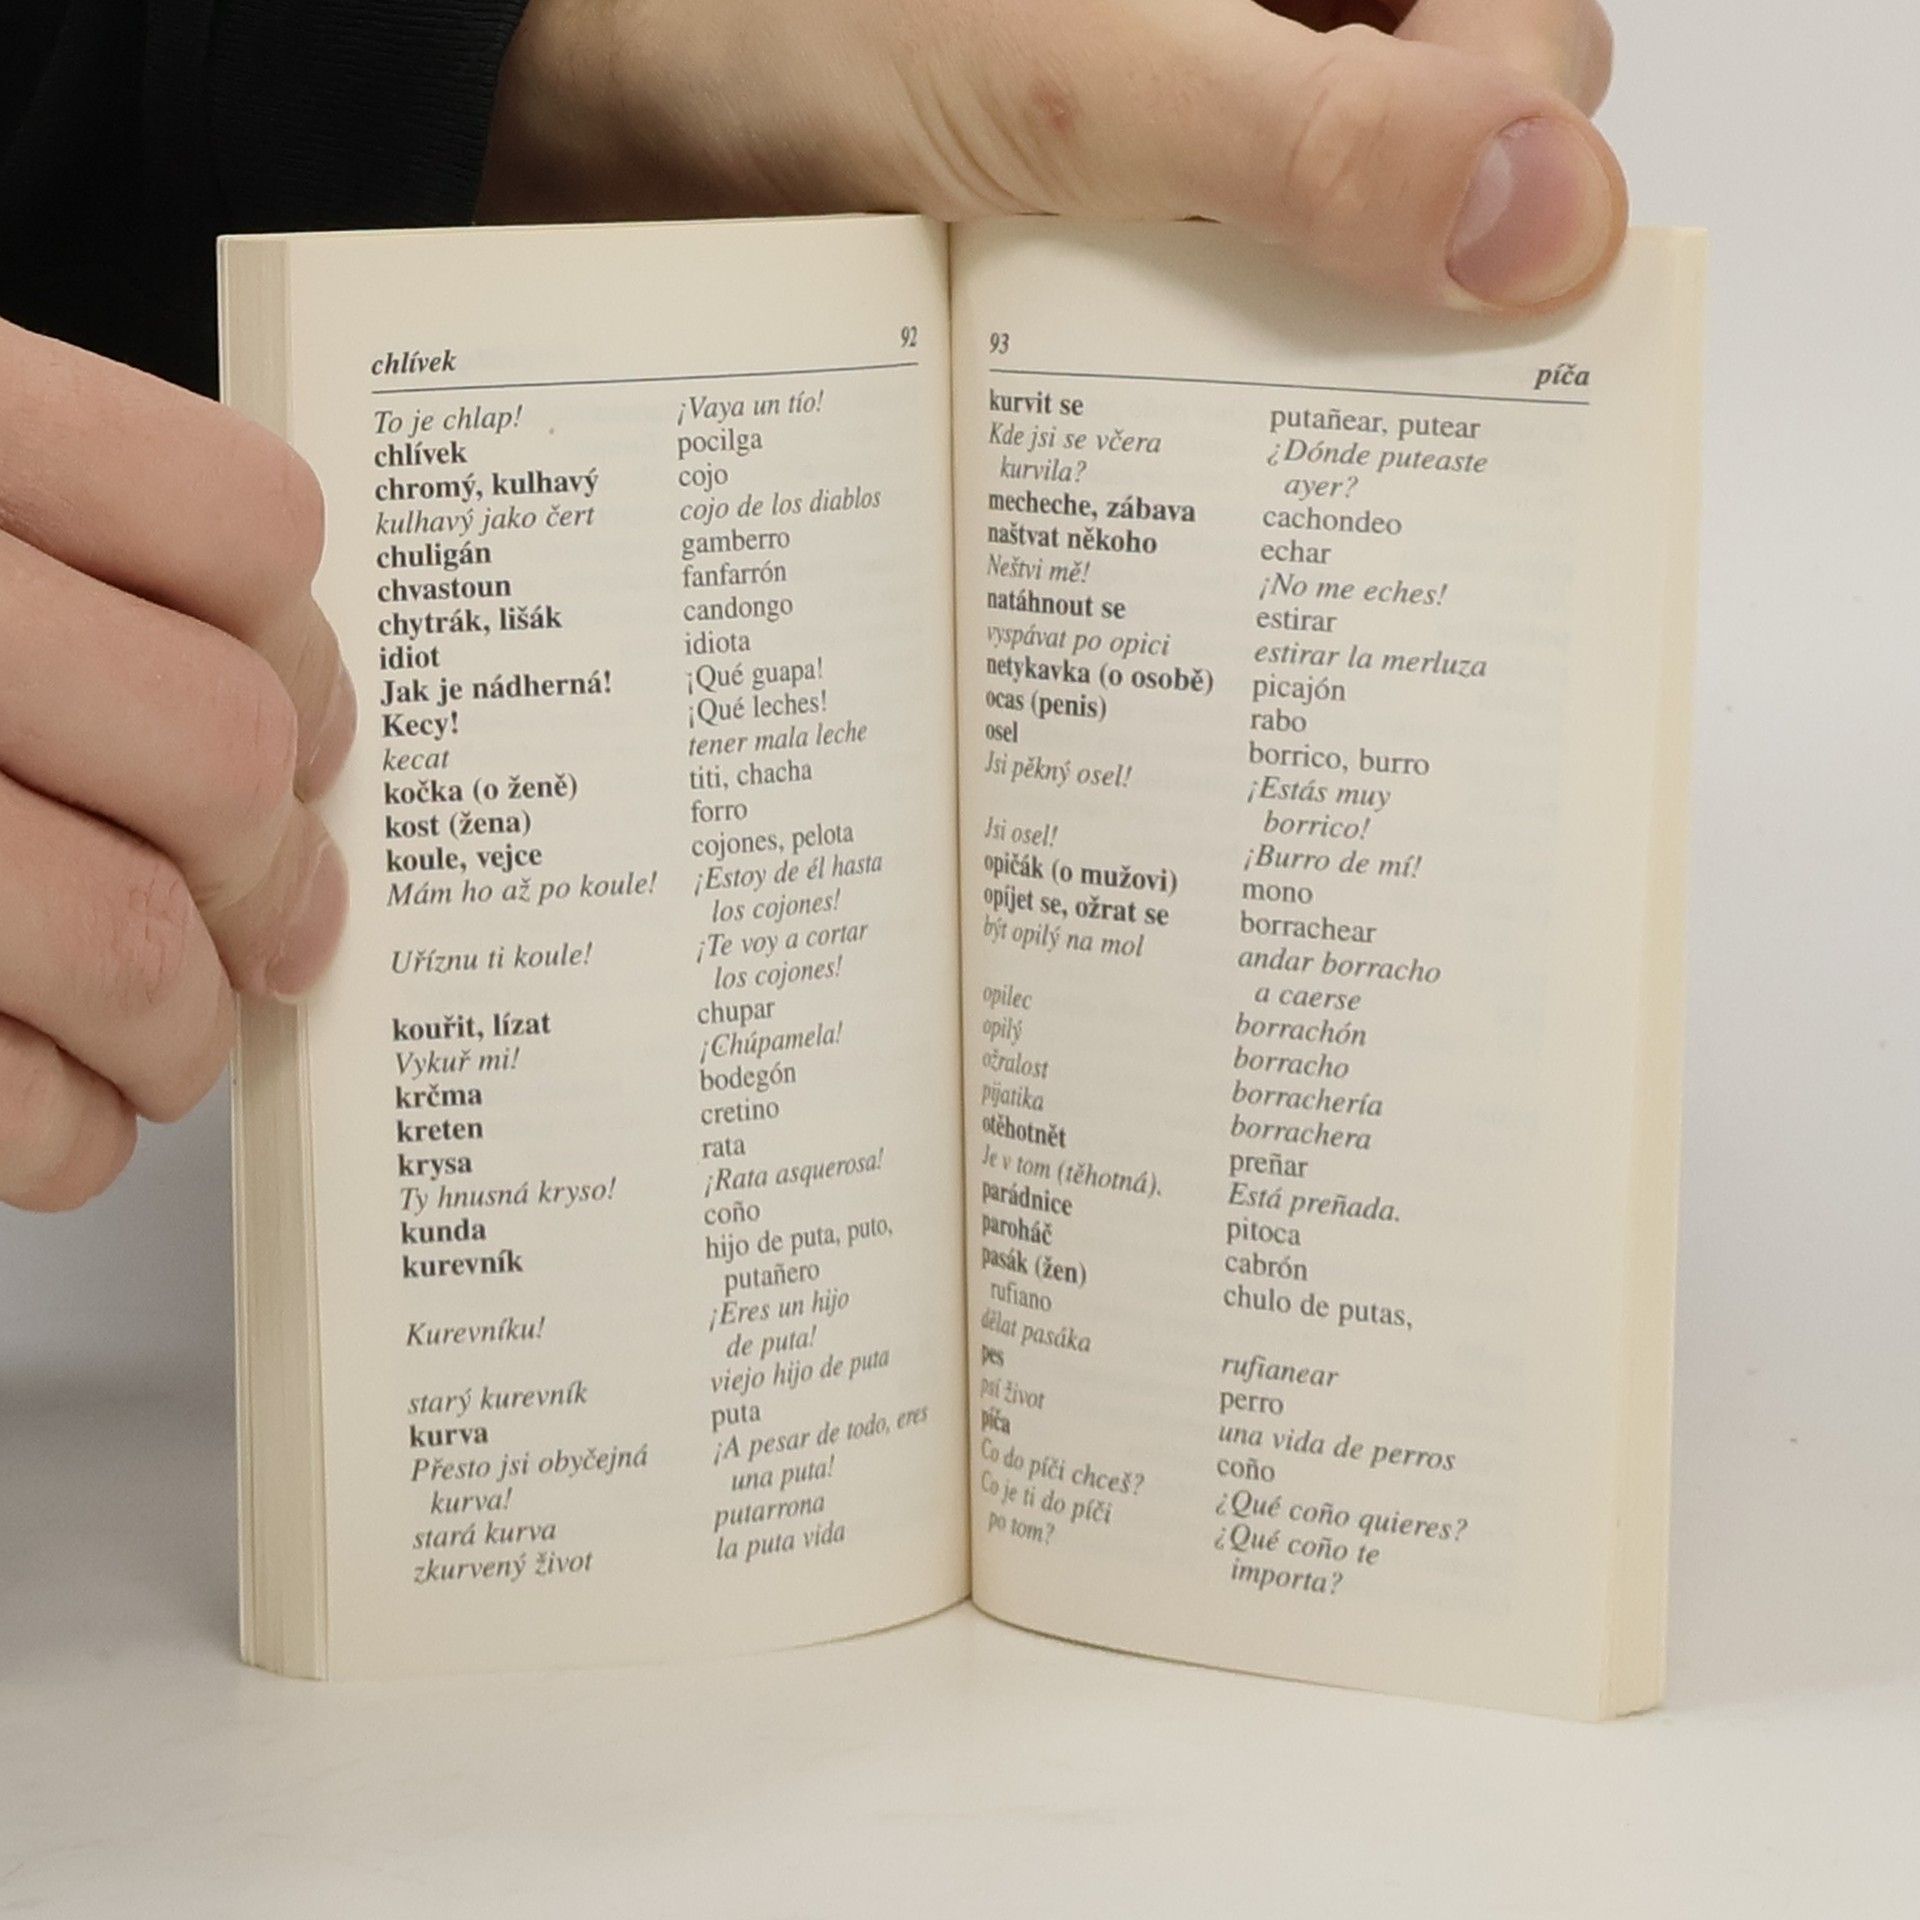 chlívek 92
To je chlap! ¡Vaya un tío!
chlívek pocilga
chromý, kulhavý cojo
kulhavý jako čert cojo de los diablos
chuligán gamberro
chvastoun fanfarrón
chytrák, lišák candongo
idiot idiota
Jak je nádherná! ¡Qué guapa!
Kecy! ¡Qué leches!
kecat tener mala leche
kočka (o ženě) titi, chacha
kost (žena) forro
koule, vejce cojones, pelota
Mám ho až po koule! ¡Estoy de él hasta
los cojones!
Uříznu ti koule! ¡Te voy a cortar
los cojones!
kouřit, lízat chupar
Vykuř mi! ¡Chúpamela!
krčma bodegón
kreten cretino
krysa rata
Ty hnusná kryso! ¡Rata asquerosa!
kunda coño
kurevník hijo de puta, puto,
putañero
Kurevníku! ¡Eres un hijo
de puta!
starý kurevník viejo hijo de puta
kurva puta
Přesto jsi obyčejná ¡A pesar de todo, eres
kurva! una puta!
stará kurva putarrona
zkurvený život la puta vida
93 píča
kurvit se putañear, putear
Kde jsi se včera ¿Dónde puteaste
kurvila? ayer?
mecheche, zábava cachondeo
naštvat někoho echar
Neštvi mě! ¡No me eches!
natáhnout se estirar
vyspávat po opici estirar la merluza
netykavka (o osobě) picajón
ocas (penis) rabo
osel borrico, burro
Jsi pěkný osel! ¡Estás muy
borrico!
Jsi osel! ¡Burro de mí!
opičák (o mužovi) mono
opíjet se, ožrat se borrachear
být opilý na mol andar borracho
a caerse
opilec borrachón
opilý borracho
ožralost borrachería
pijatika borrachera
otěhotnět preñar
Je v tom (těhotná). Está preñada.
parádnice pitoca
paroháč cabrón
pasák (žen) chulo de putas,
rufiano
dělat pasáka rufianear
pes perro
psí život una vida de perros
píča coño
Co do píči chceš? ¿Qué coño quieres?
Co je ti do píči ¿Qué coño te
po tom? importa?